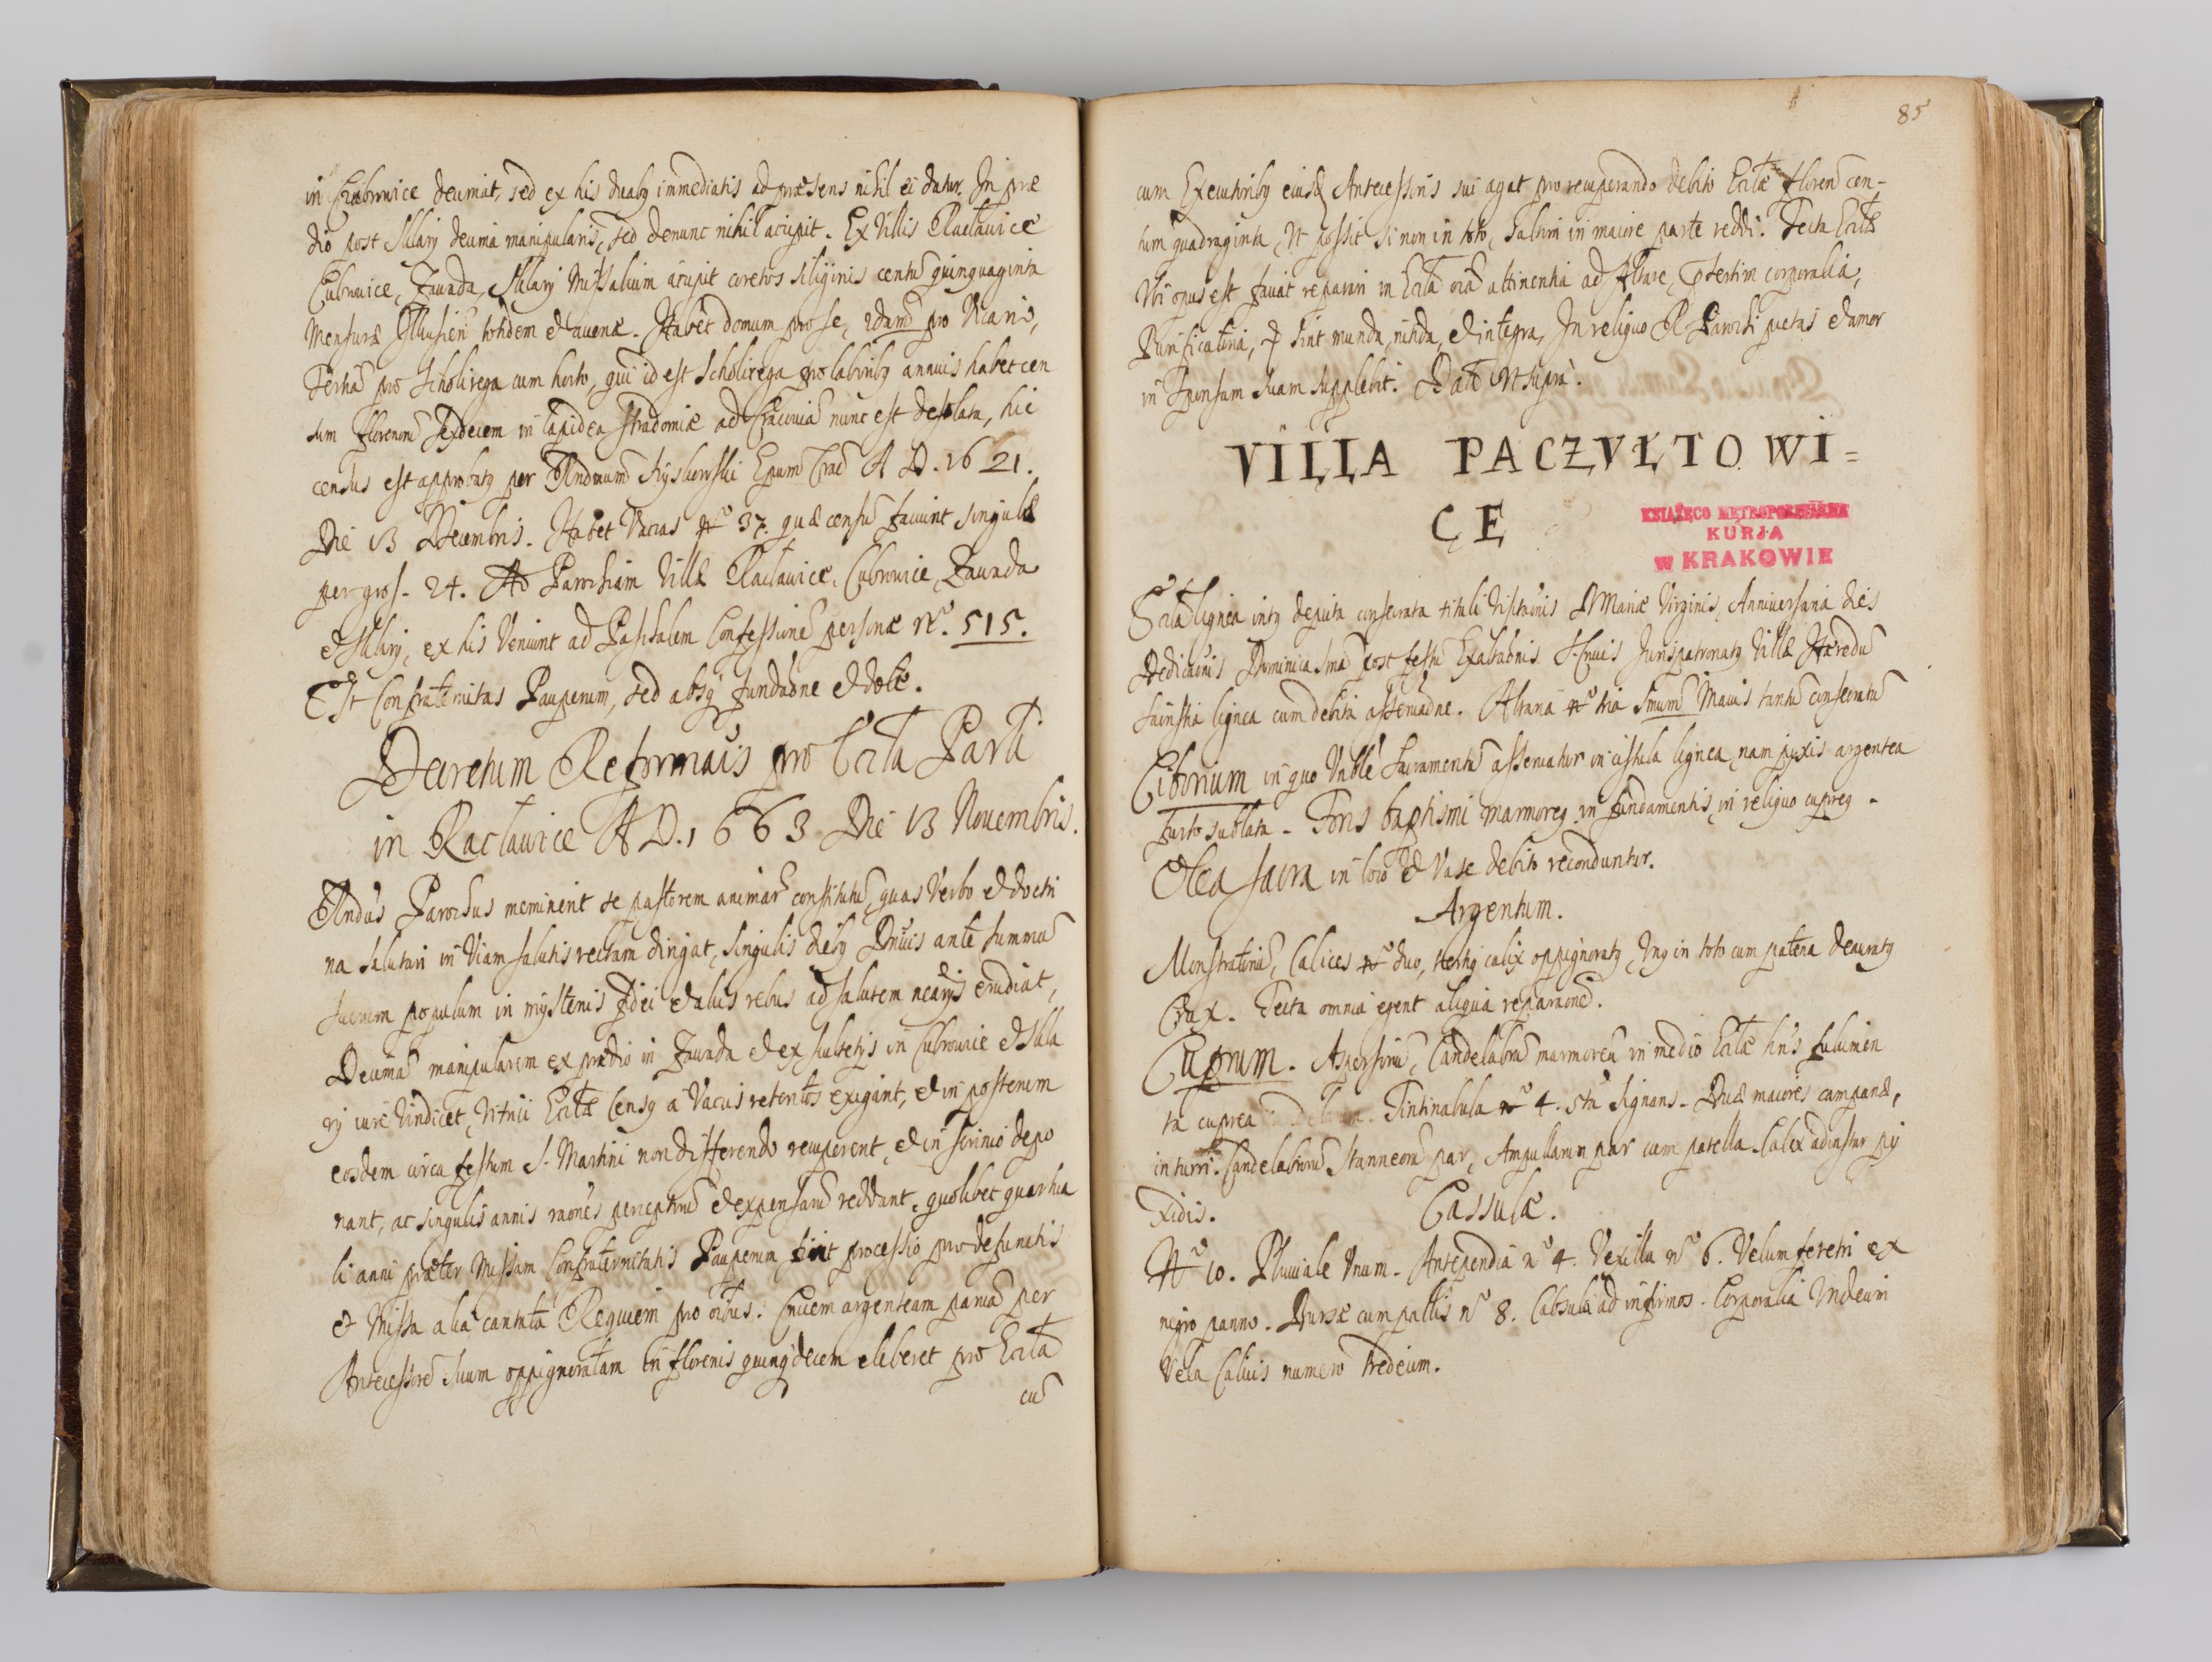 in Czubrowice decimat, sed ex his duabq immediatis ad præsens nihil ei datur. In præ
dio post Sklary decima manipularis, sed denunc nihil accipit. Ex Villis Racławice
Cubrowice, Zawada, Sklary Missalium accipit coretos siliginis centū quinquaginta
mensuræ Ilkusien̄ totidem et avenæ. Habet domum pro se, 2dam̄ pro Vicario,
Tertiā pro Scholirega cum horto, qui id est Scholirega pro laboribq annuis habet cen
sum florenorū sexdecem in lapidea Stradomiæ ad Cracoviā nunc est desolata, hic
census est approbatq per Rndmum Szyskowski Epum Crac̄ A D. 1621.
Die 13 Decembris. Habet Vaccas No 37. quæ censū faciunt singulæ
per gros. 24. Ad Parochiam Villæ Racławice, Cubrowice, Zawada
et Sklary, ex his Veniunt ad Paschalem Confessionē personæ No. 515.
Est Confraternitas Pauperum, sed absq fundaone et dote.
Decretum Reformaōis pro Eccla Parli
in Racławice A D. 1663 Die 13 Novembris.
Rndus Parochus meminerit se pastorem animar̄ constitutū, quas Verbo et doctri
na salutari in Viam salutis rectam dirigat, singulis diebq Dnicis ante summū
sacrum populum in mysterijs fidei et alijs rebus ad salutem necrijs erudiat,
Decimā manipularem ex prædio in Zawada et ex scultetijs in Cubrowice et Skla
rij iure Vindicet, Vitrici Ecclæ Censq a Vaccis retentos exigant, et in posterum
eosdem circa festum S. Martini non differendo recuperent, et in scrinio depo
nant, ac singulis annis raōnes perceptorū et expensarū reddant, quolibet quarta
li anni præter Missam Confraternitatis Pauperum fiat processio pro defunctis
et Missa alia cantata Requiem pro oibus. Crucem argenteam parvā per
Antecessorē suum oppignoratam in florenis quinqdecem eliberet pro Eccla
cū
85
cum Executoribq eiusd Antecessoris sui agat pro recuperando debito Ecclæ floren̄ cen-
tum quadraginta, Vt possit si non in toto, saltim in maiore parte reddi. Tecta Ecclæ
Vbi opus est faciat reparari in Eccla oia attinentia ad Altare, præsertim corporalia,
Purificatoria, vt sint munda, nitida, et integra, In reliquo R. Parochi pietas et amor
in Sponsam suam supplebit. Dat̄ Vt supra.
VILLA PACZVŁTOWI=
CE
KSIĄŻĘCO METROPOLITALNA
KURJA
w KRAKOWIE
Eccla lignea intq depicta consecrata tituli Visitaōnis B Mariæ Virginis, Anniversaria dies
Dedicaōnis Dominica 1ma post festū Exaltaōnis S. Crucis Jurispatronatq Villæ Hæredū
Sacristia lignea cum debita asservaōne. Altaria No tria Smum Maius tantū consecratū
Ciborium in quo Vnble Sacramentū asservatur in cistula lignea, nam pyxis argentea
furto sublata. Fons baptismi marmoreq in fundamentis, in reliquo cupreq.
Olea sacra in loco et Vase debito reconduntur.
Argentum.
Monstratoriū, Calices No duo, tertiq calix oppignoratq, Vnq in toto cum patena deauratq
Crux. Tecta omnia egent aliqua reparaōne.
Cuprum. Aspersoriū, Candelabrū marmoreū in medio Ecclæ
ta cuprea Tintinabula No 4. 5tū Signans. Duæ maiores campanæ,
in turri. Candelabrorū stanneorū par, Ampullarum par cum patella. Calix ad instar py
xidis.
Cassulæ.
No 10. Pluviale Vnum. Antependia No 4. Vexilla No 6. Velum feretri ex
nigro panno. Bursæ cum pallis No 8. Capsula ad infirmos. Corporalia Vndecim
Vela Calicis numero tredecim.